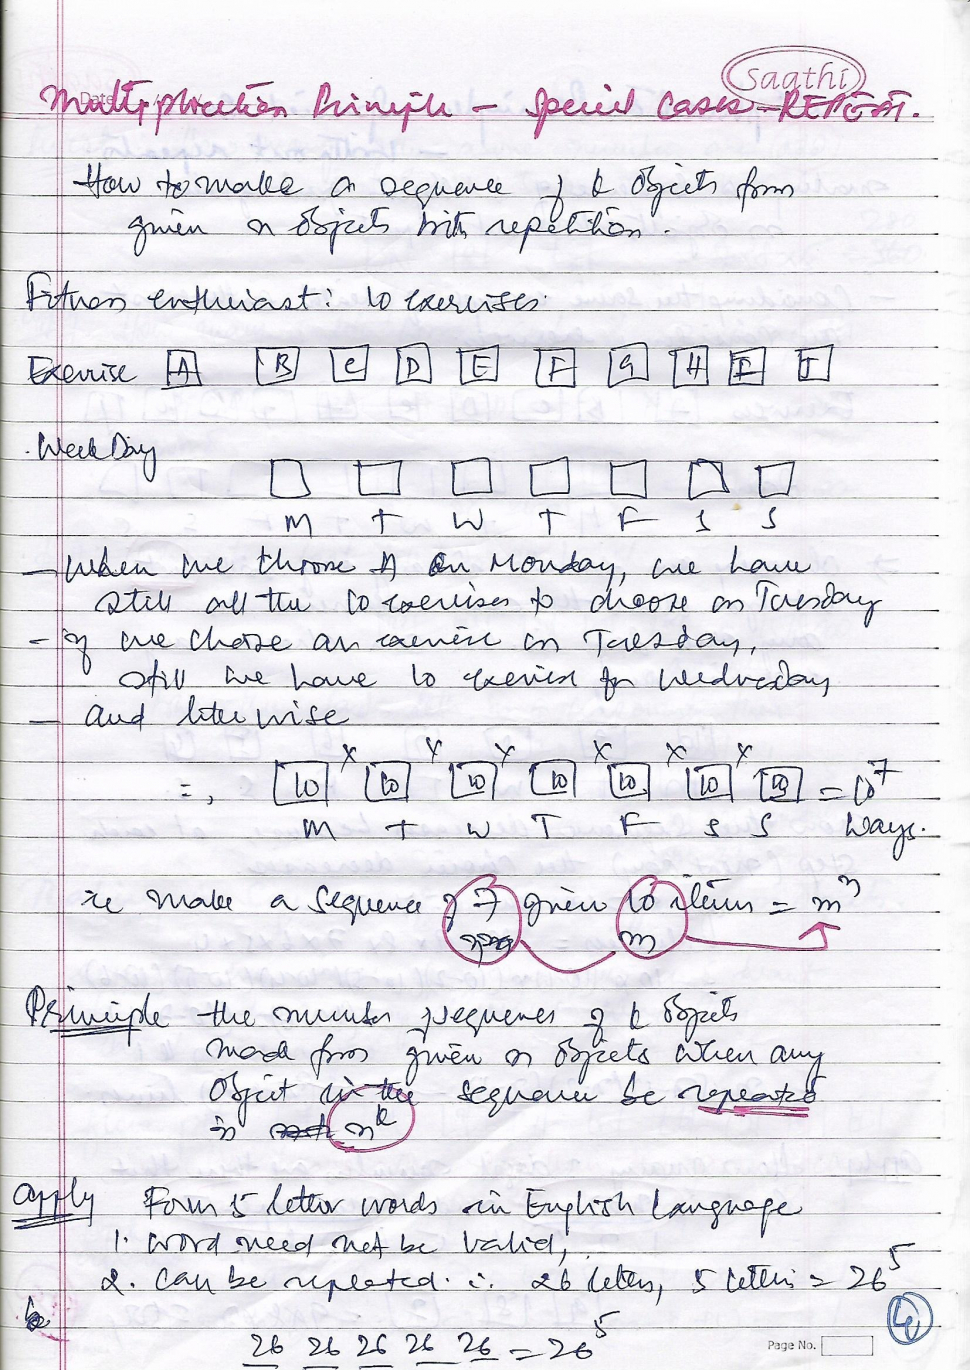 Saathi
Date / /
Multiplication Principle - Special Cases - REPEAT.
How to make a sequence of k objects from
given n objects with repetition.
Fitness enthusiast: 10 exercises.
Exercise A B C D E F G H I J
Week Day
M T W T F S S
- When we choose A on Monday, we have
still all the 10 exercises to choose on Tuesday
- if we chose an exercise on Tuesday,
still we have 10 exercises for Wednesday
- and likewise
=, 10 x 10 x 10 x 10 x 10 x 10 x 10 = 10^7
M T W T F S S Ways.
ie make a sequence of 7 given 10 items = m^n
m
Principle the number sequences of k objects
made from given n objects when any
Object in the sequence be repeated
is n^k
Apply Form 5 letter words in English Language
1. word need not be valid,
2. can be repeated. ∴ 26 letters, 5 letters = 26^5
26 26 26 26 26 = 26^5
Page No.